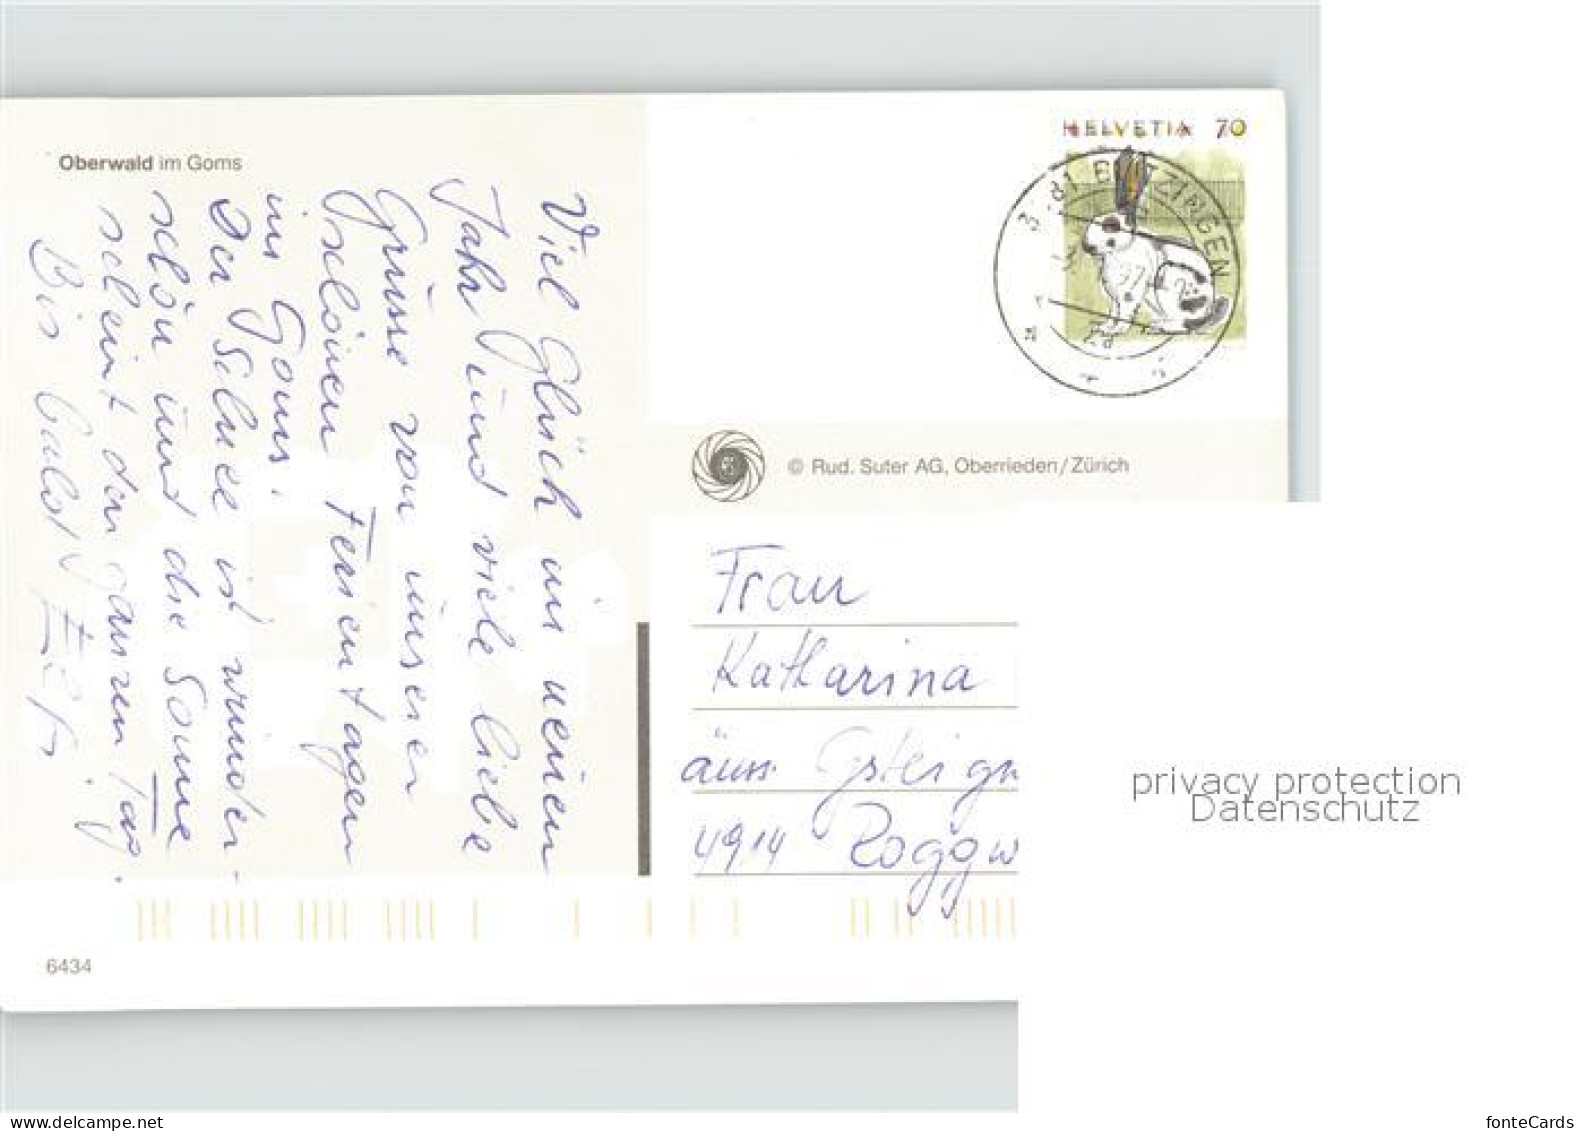 Oberwald im Goms
Viel Glück im neuen
Jahr und viele liebe
Grüsse von unseren
schönen Ferientagen
im Goms.
Der Schnee ist wunder-
schön und die Sonne
scheint den ganzen Tag.
Bis bald
HELVETIA 70
© Rud. Suter AG, Oberrieden/Zürich
Frau
Katharina
4914 Roggw
6434
privacy protection
Datenschutz
fonteCards